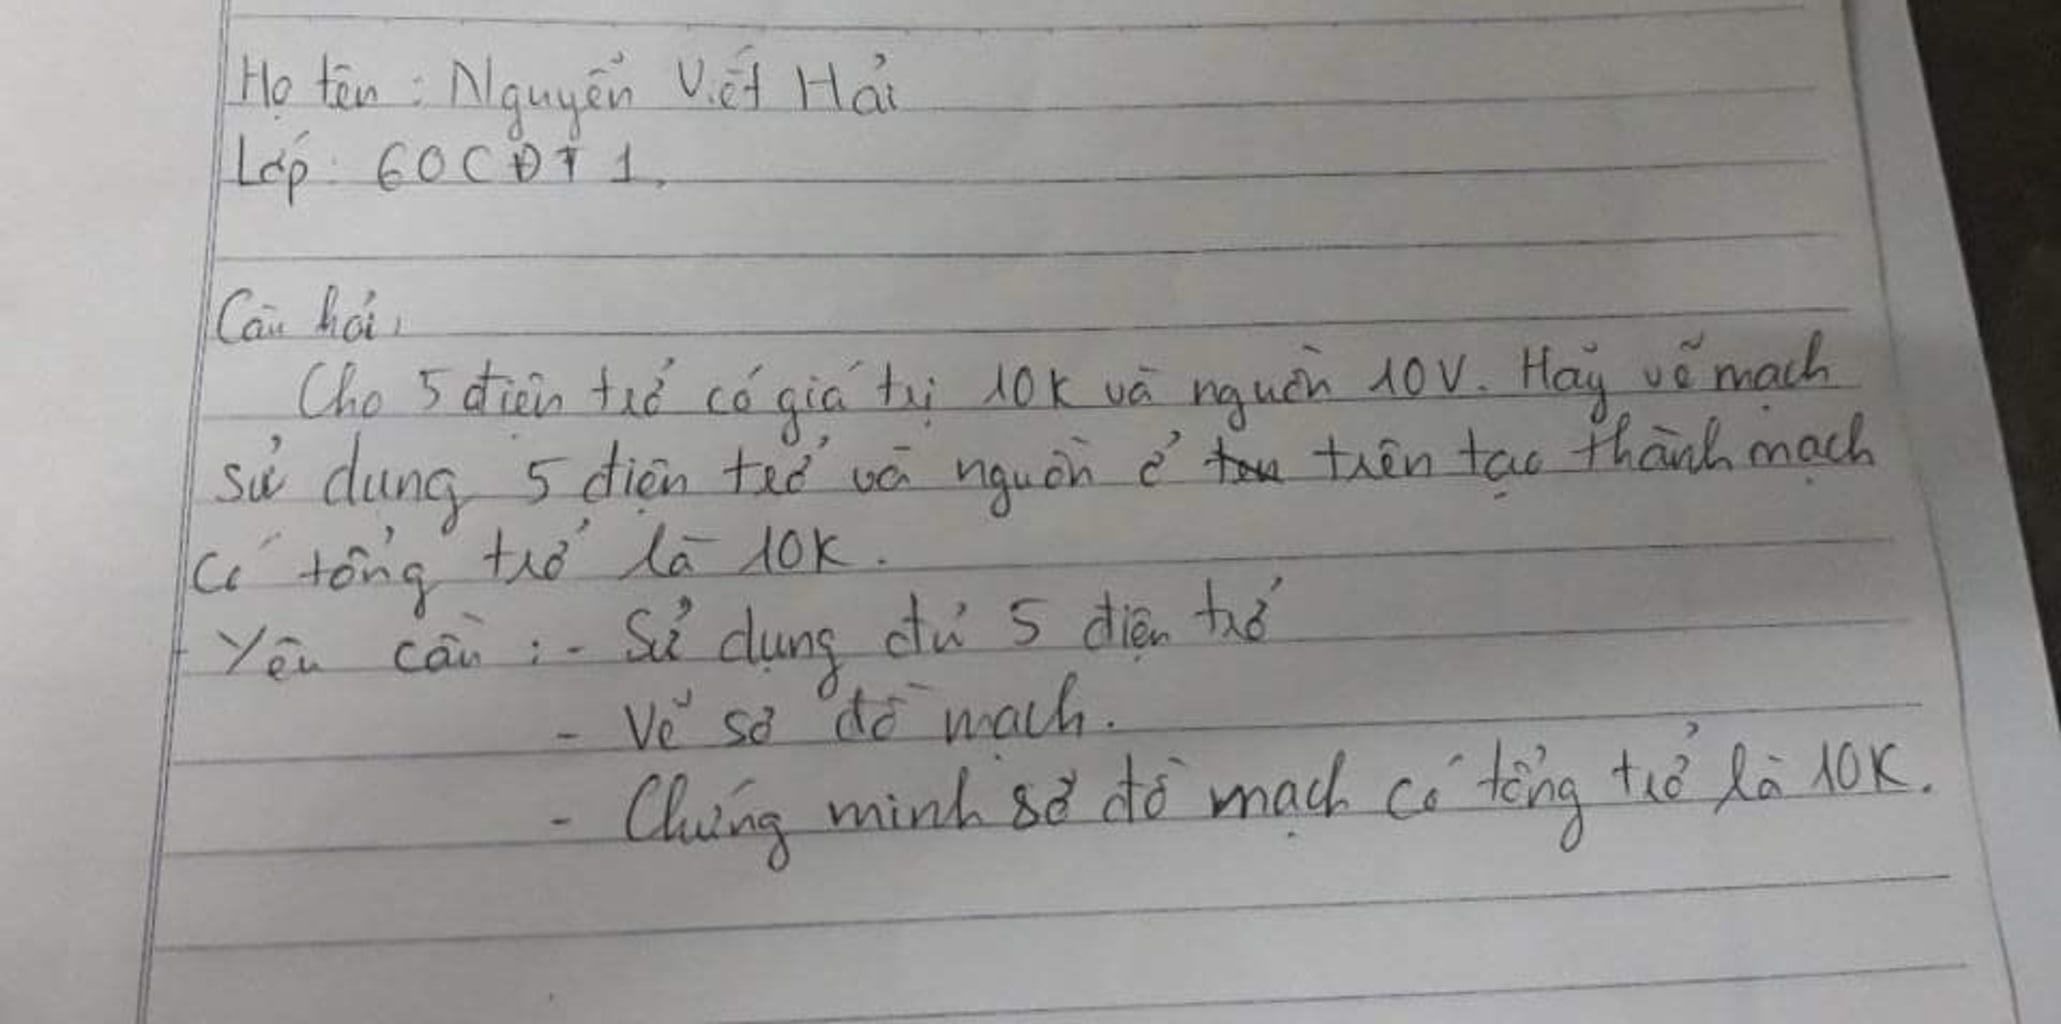 Họ tên : Nguyễn Viết Hải
Lớp : 60CĐT1.
Câu hỏi :
Cho 5 điện trở có giá trị 10K và nguồn 10V. Hãy vẽ mạch
sử dụng 5 điện trở và nguồn ở trên tạo thành mạch
có tổng trở là 10K.
Yêu cầu : - Sử dụng đủ 5 điện trở
- Vẽ sơ đồ mạch.
- Chứng minh sơ đồ mạch có tổng trở là 10K.